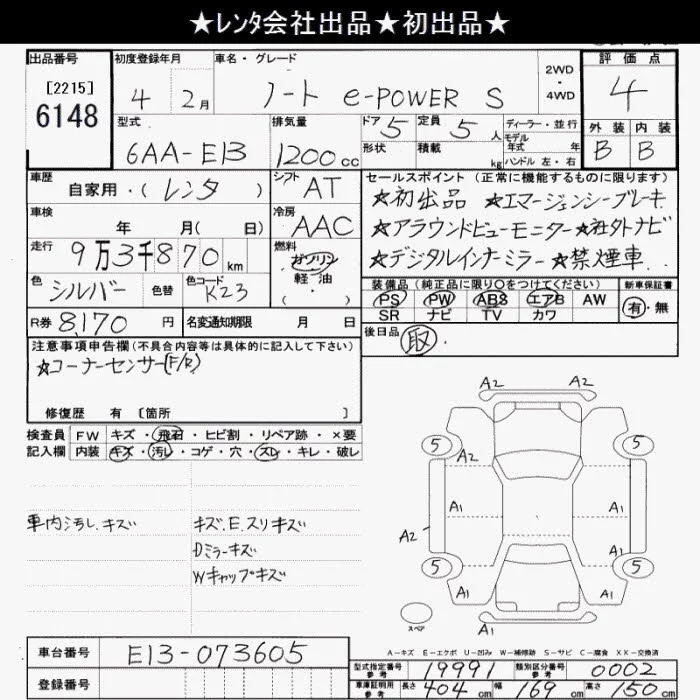 ★レンタ会社出品★初出品★
出品番号
[2215]
6148
初度登録年月
4年2月
車名・グレード
ノート e-POWER S
2WD
・
4WD
評価点
4
外装 内装
B B
型式
6AA-E13
排気量
1200cc
ドア 5
定員 5人
形状
積載 kg
ディーラー・並行
モデル
年式 年
ハンドル 左・右
車歴
自家用・(レンタ)
シフト
AT
車検
年 月( 日)
冷房
AAC
走行
9万3千870km
燃料
ガソリン
軽油
( ・ )
色
シルバー
色替
色コード
K23
R券 8,170円
名変通知期限 月 日
セールスポイント(正常に機能するものに限ります)
★初出品 ★エマージェンシーブレーキ
★アラウンドビューモニター ★社外ナビ
★デジタルインナーミラー ★禁煙車
装備品(純正品に限り〇をつけてください)
PS PW ABS エアB AW
SR ナビ TV カワ
新車保証書
有・無
後日品 取・
注意事項申告欄(不具合内容等は具体的に記入して下さい)
★コーナーセンサー(F/R)
修復歴 有 [箇所 ]
検査員
記入欄
FW キズ・飛石・ヒビ割・リペア跡・×要
内装 キズ・汚レ・コゲ・穴・スレ・キレ・破レ
車内汚レ、キズ
キズ、E、スリキズ
Dミラーキズ
Wキャップキズ
A2 A2
5 5
A2
A1 A1
A2
A1 A1
5 5
A1 A1
A1
スペア
A-キズ E-エクボ U-凹み W-補修跡 S-サビ C-腐食 XX-交換済
車台番号 E13-073605
登録番号
型式指定番号
参考
19991
類別区分番号
参考
0002
車庫証明用
参考
長さ 404cm 幅 169cm 高さ 150cm